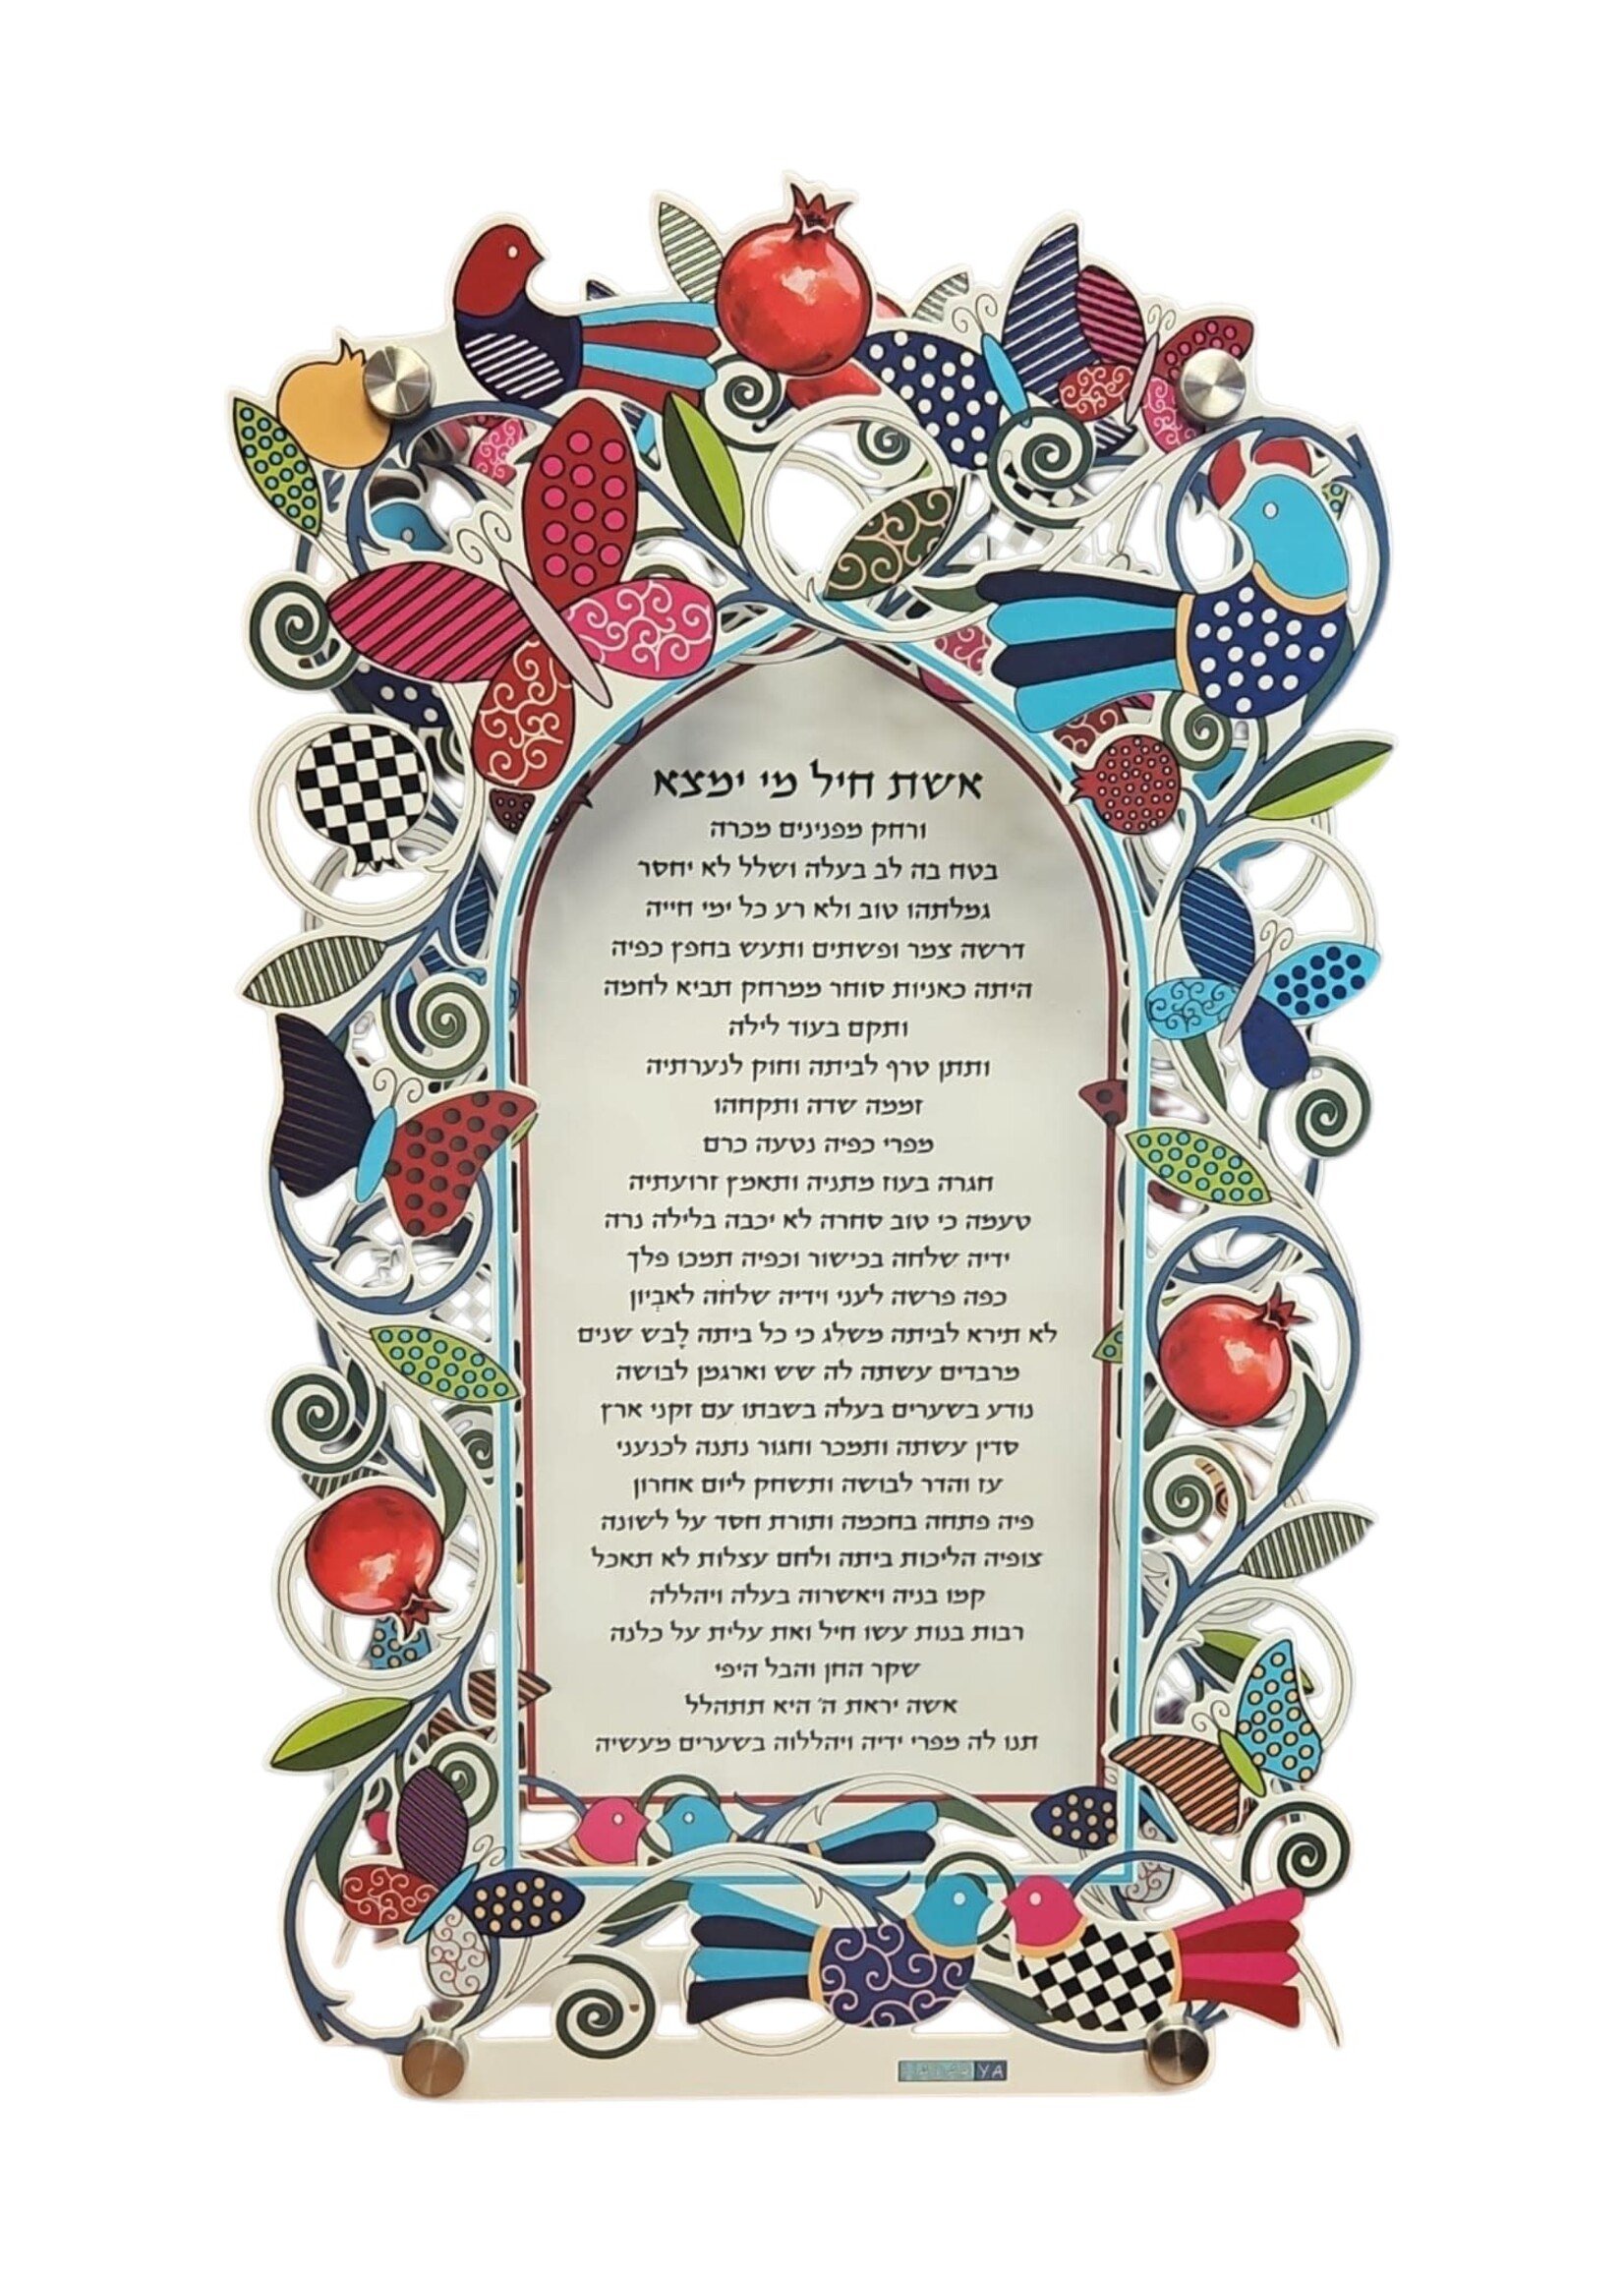 אשת חיל מי ימצא
ורחק מפנינים מכרה
בטח בה לב בעלה ושלל לא יחסר
גמלתהו טוב ולא רע כל ימי חייה
דרשה צמר ופשתים ותעש בחפץ כפיה
היתה כאניות סוחר ממרחק תביא לחמה
ותקם בעוד לילה
ותתן טרף לביתה וחוק לנערתיה
זממה שדה ותקחהו
מפרי כפיה נטעה כרם
חגרה בעוז מתניה ותאמץ זרועתיה
טעמה כי טוב סחרה לא יכבה בלילה נרה
ידיה שלחה בכישור וכפיה תמכו פלך
כפה פרשה לעני וידיה שלחה לאבְיון
לא תירא לביתה משלג כי כל ביתה לָבש שנים
מרבדים עשתה לה שש וארגמן לבושה
נודע בשערים בעלה בשבתו עם זקני ארץ
סדין עשתה ותמכר וחגור נתנה לכנעני
עז והדר לבושה ותשחק ליום אחרון
פיה פתחה בחכמה ותורת חסד על לשונה
צופיה הליכות ביתה ולחם עצלות לא תאכל
קמו בניה ויאשרוה בעלה ויהללה
רבות בנות עשו חיל ואת עלית על כלנה
שקר החן והבל היפי
אשה יראת ה' היא תתהלל
תנו לה מפרי ידיה ויהללוה בשערים מעשיה
YA